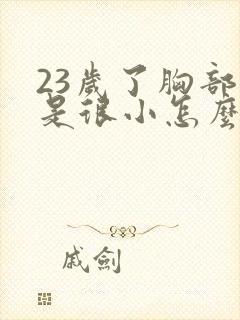 23歲了胸部
是很小怎麼
戚劍